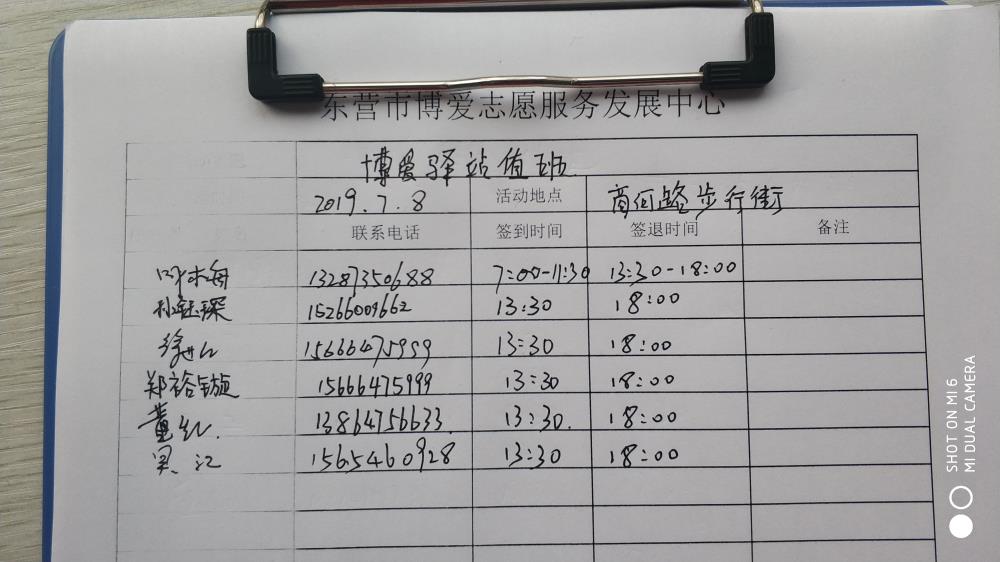 东营市博爱志愿服务发展中心
博爱驿站值班
2019.7.8 活动地点 商河路步行街
联系电话 签到时间 签退时间 备注
13287350688 7:00-11:30 13:30-18:00
孙钰琛 15266009662 13:30 18:00
15666475999 13:30 18:00
郑裕镟 15666475999 13:30 18:00
董红. 13864756633. 13:30. 18:00
吴江 15654609928 13:30 18:00
SHOT ON MI 6
MI DUAL CAMERA